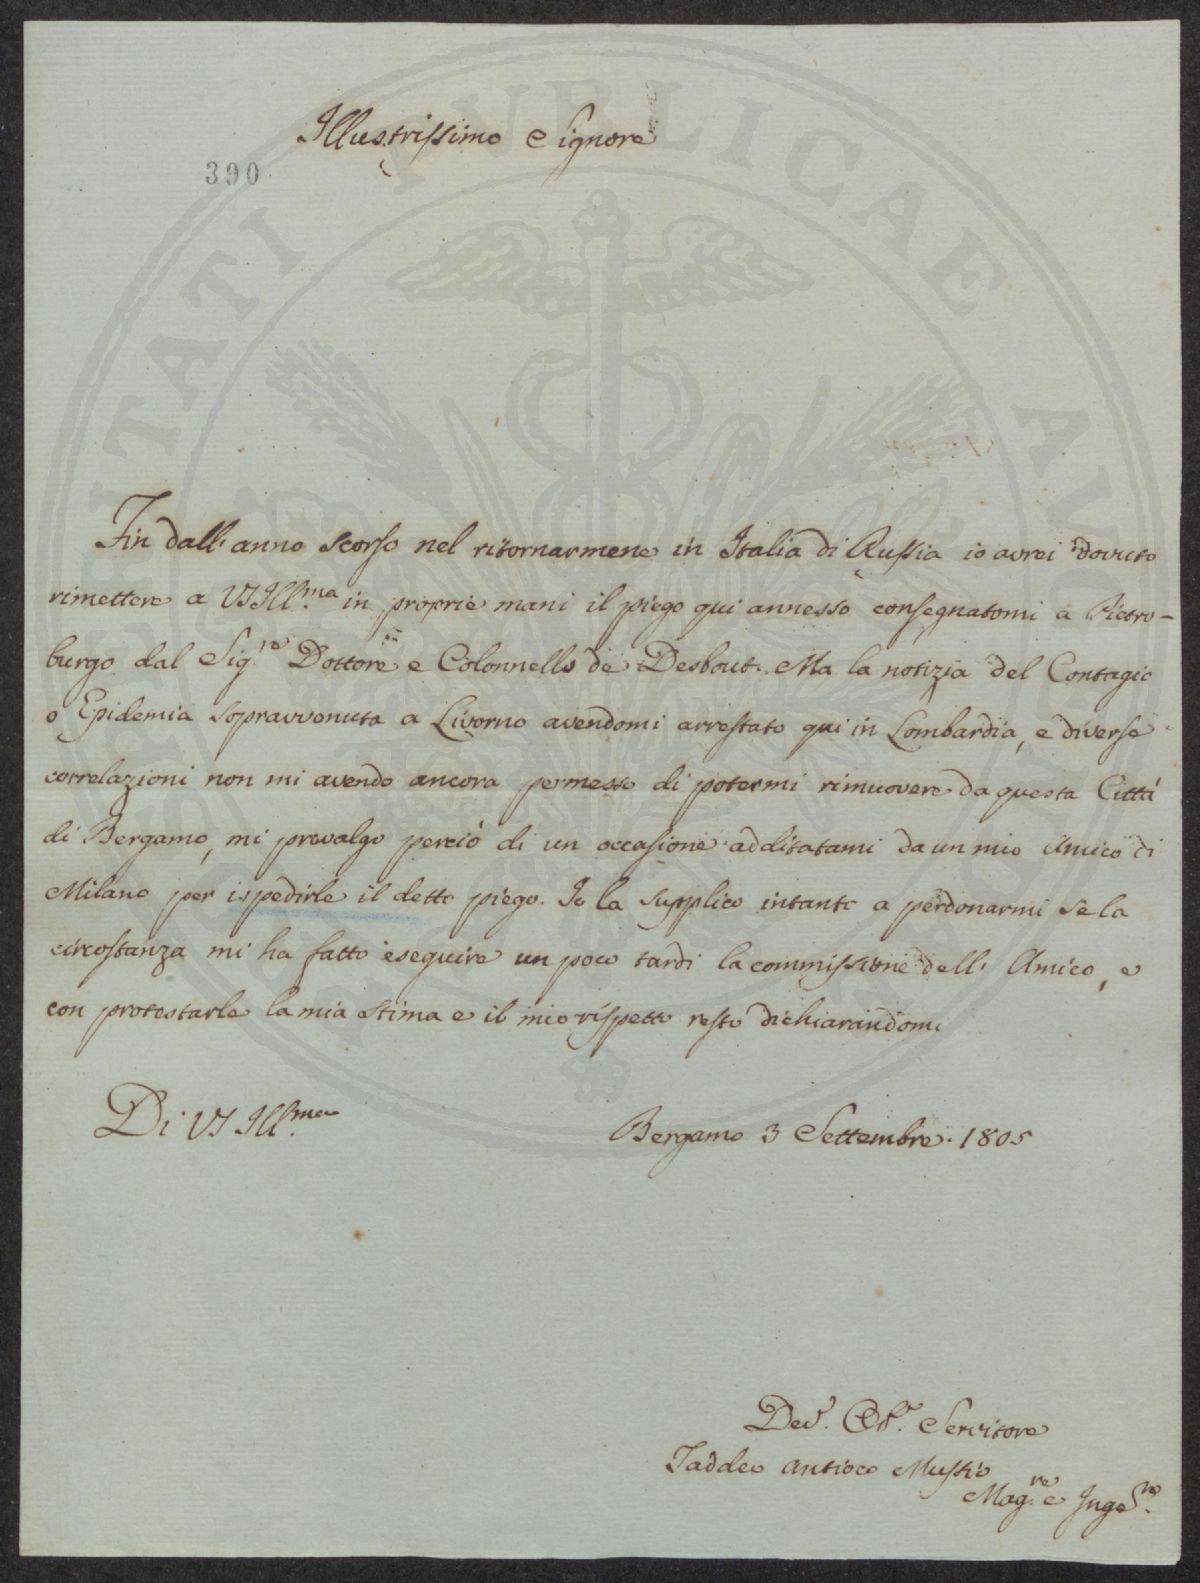 Illustrissimo Signore
390
Fin dall' anno scorso nel ritornarmene in Italia di Russia io avrei dovuto
rimettere a VS Ill.ma in proprie mani il piego qui annesso consegnatomi a Pietro-
burgo dal Sig.re Dottore e Colonnello de Desbout. Ma la notizia del Contagio
o Epidemia sopravvenuta a Livorno avendomi arrestato qui in Lombardia, e diverse
correlazioni non mi avendo ancora permesso di potermi rimuovere da questa Città
di Bergamo, mi prevalgo perciò di un occasione additatami da un mio Amico di
Milano per ispedirle il detto piego. Io la supplico intanto a perdonarmi se la
circostanza mi ha fatto eseguire un poco tardi la commissione dell' Amico, e
con protestarle la mia stima e il mio rispetto resto dichiarandomi
Di VS Ill.ma
Bergamo 3 Settembre 1805
Dev. Ob. Servitore
Taddeo Antioco
Mag.re e Inge.re